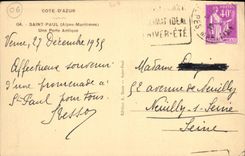 06
COTE D'AZUR
04. SAINT PAUL (Alpes-Maritimes)
Une Porte Antique
Vence, 27 Décembre 1935
Affectueux souvenir
d'une promenade à
St Paul pour tous.
CLIMAT IDÉAL
HIVER-ÉTÉ
40
Madame
52 avenue de Neuilly
Neuilly-s-Seine
Seine